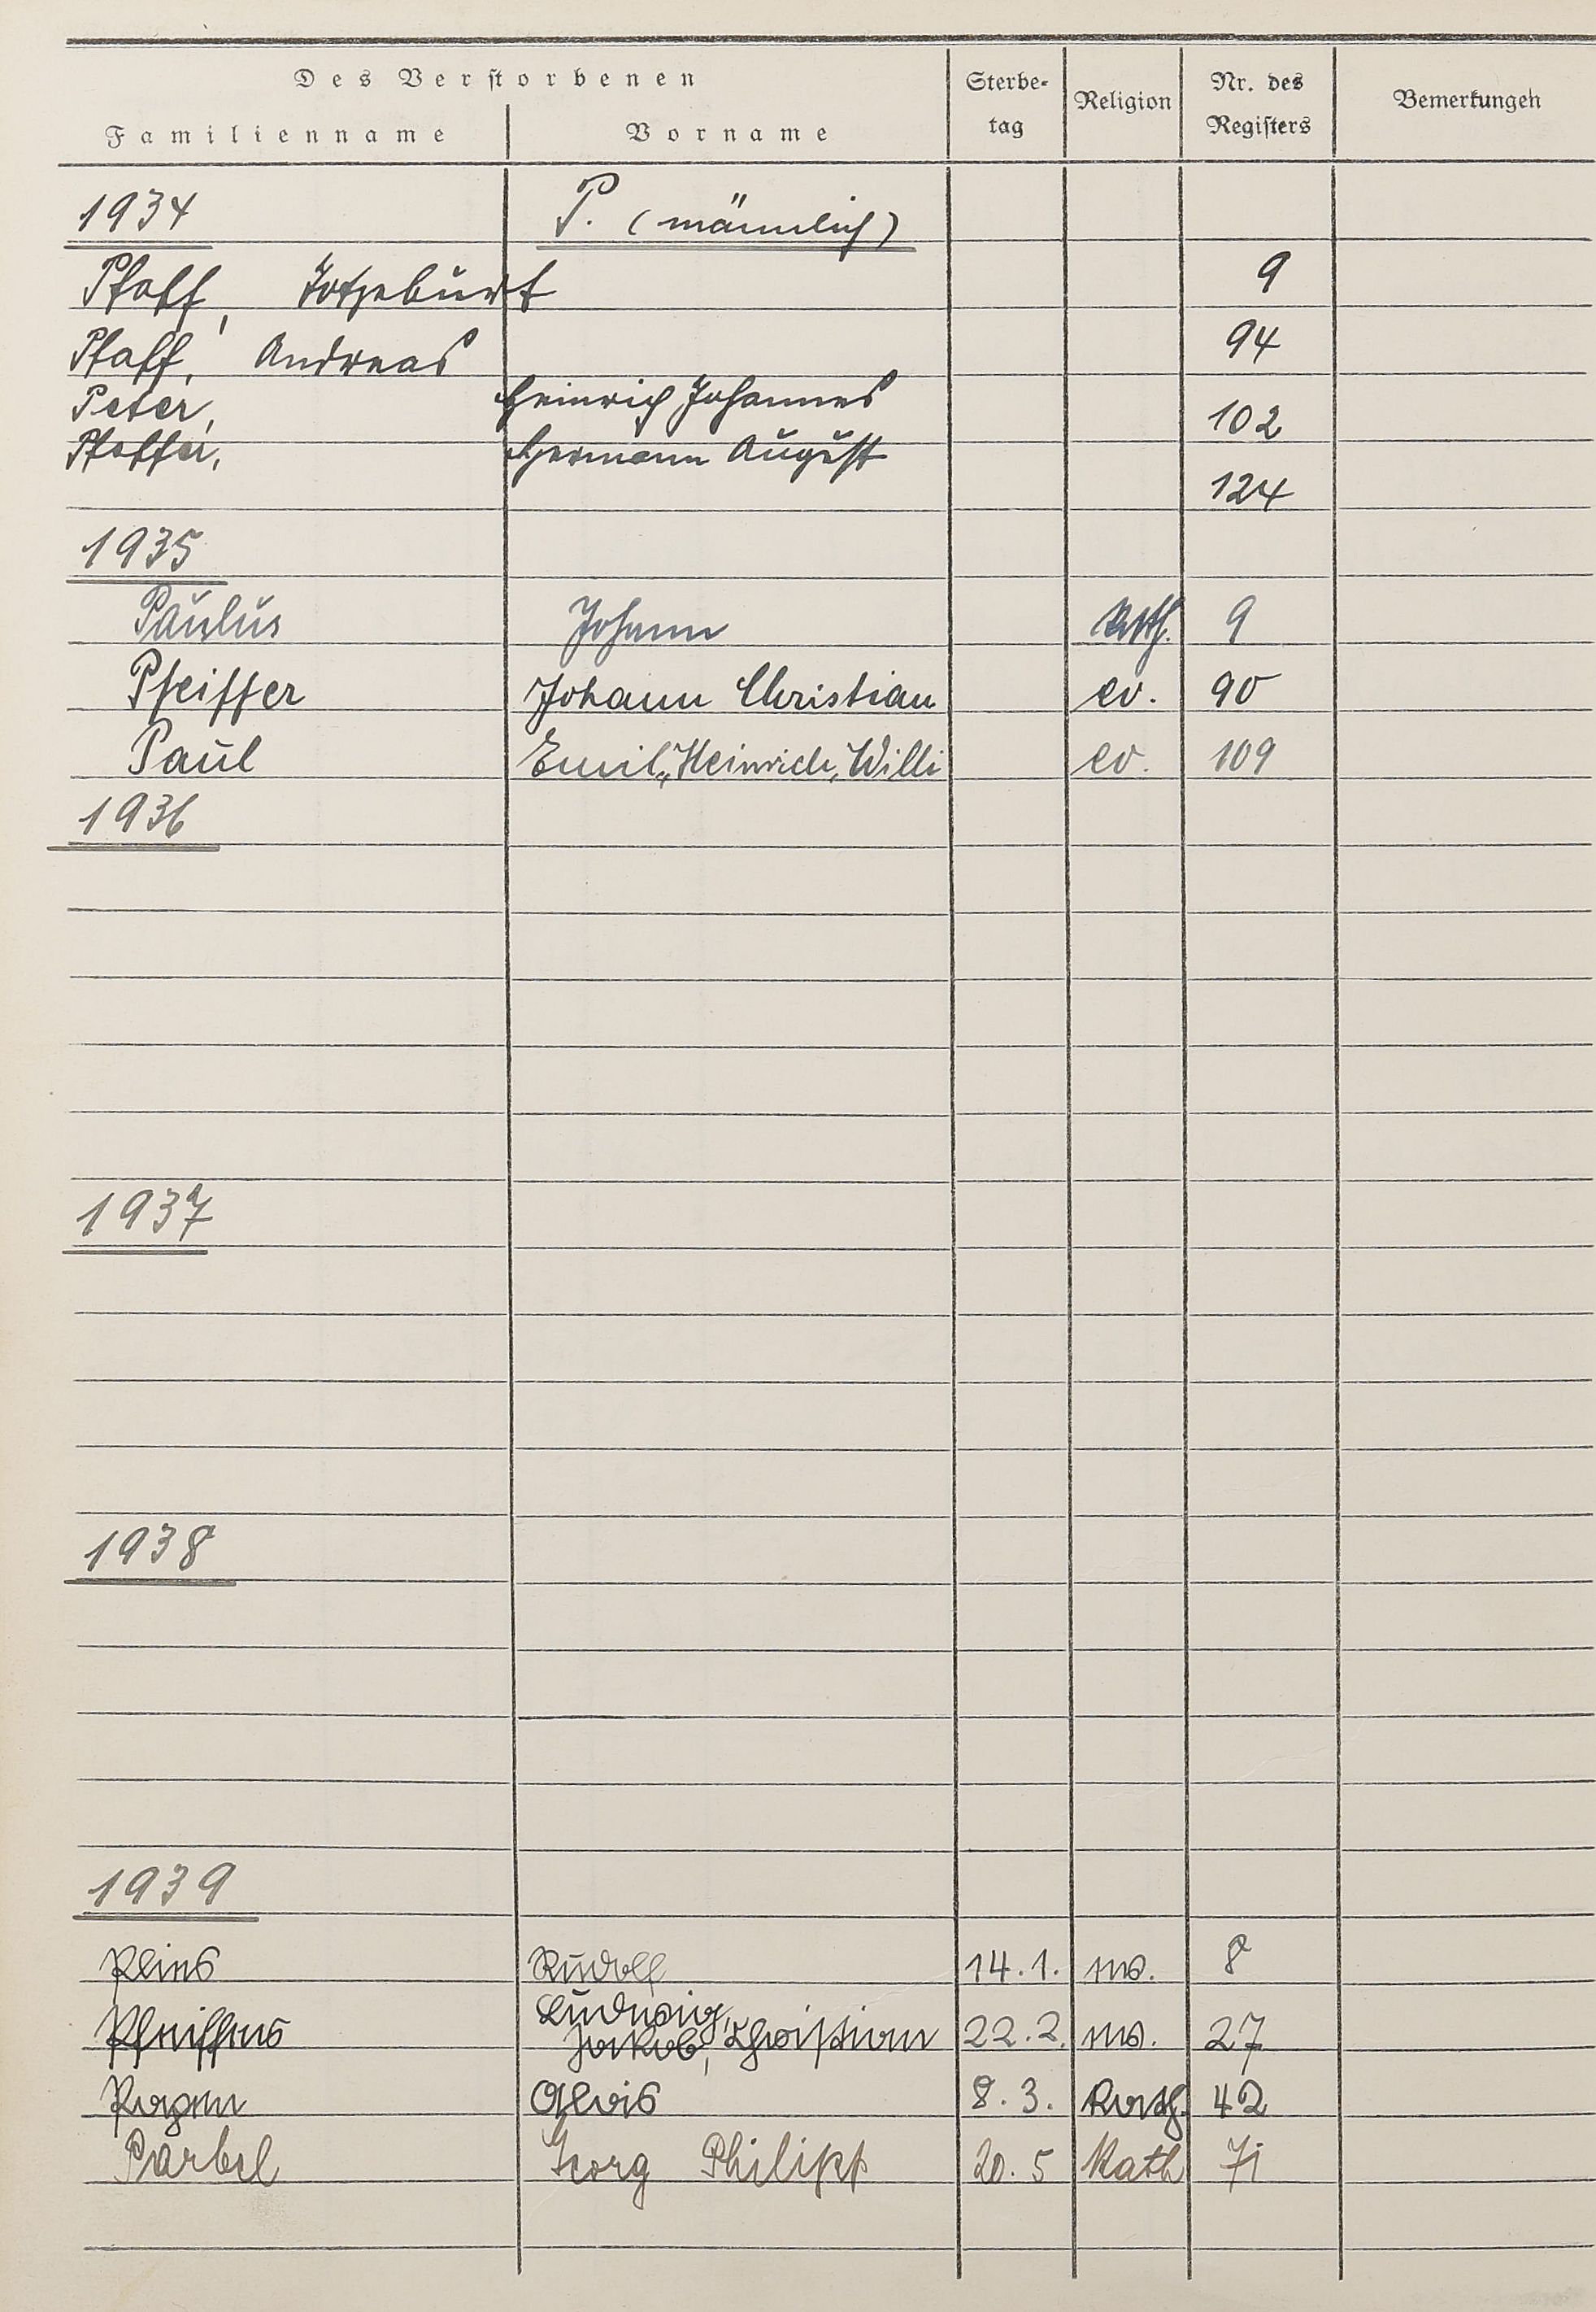 Des Verstorbenen
Familienname Vorname Sterbe-tag Religion Nr. des Registers Bemerkungen
1934 P. (männlich)
Pfaff, Totgeburt 9
Pfaff, Andreas 94
Peter, Heinrich Johannes 102
Hermann August 124
1935
Paulus Johann kath. 9
Pfeiffer Johann Christian ev. 90
Paul Emil, Heinrich, Willi ev. 109
1936
1937
1938
1939
Rudolf 14.1. ev. 8
Pfeiffer Ludwig, Jakob, Christian 22.2. ev. 27
Alois 8.3. Kath. 42
Parbel Georg Philipp 20.5 Kath 71